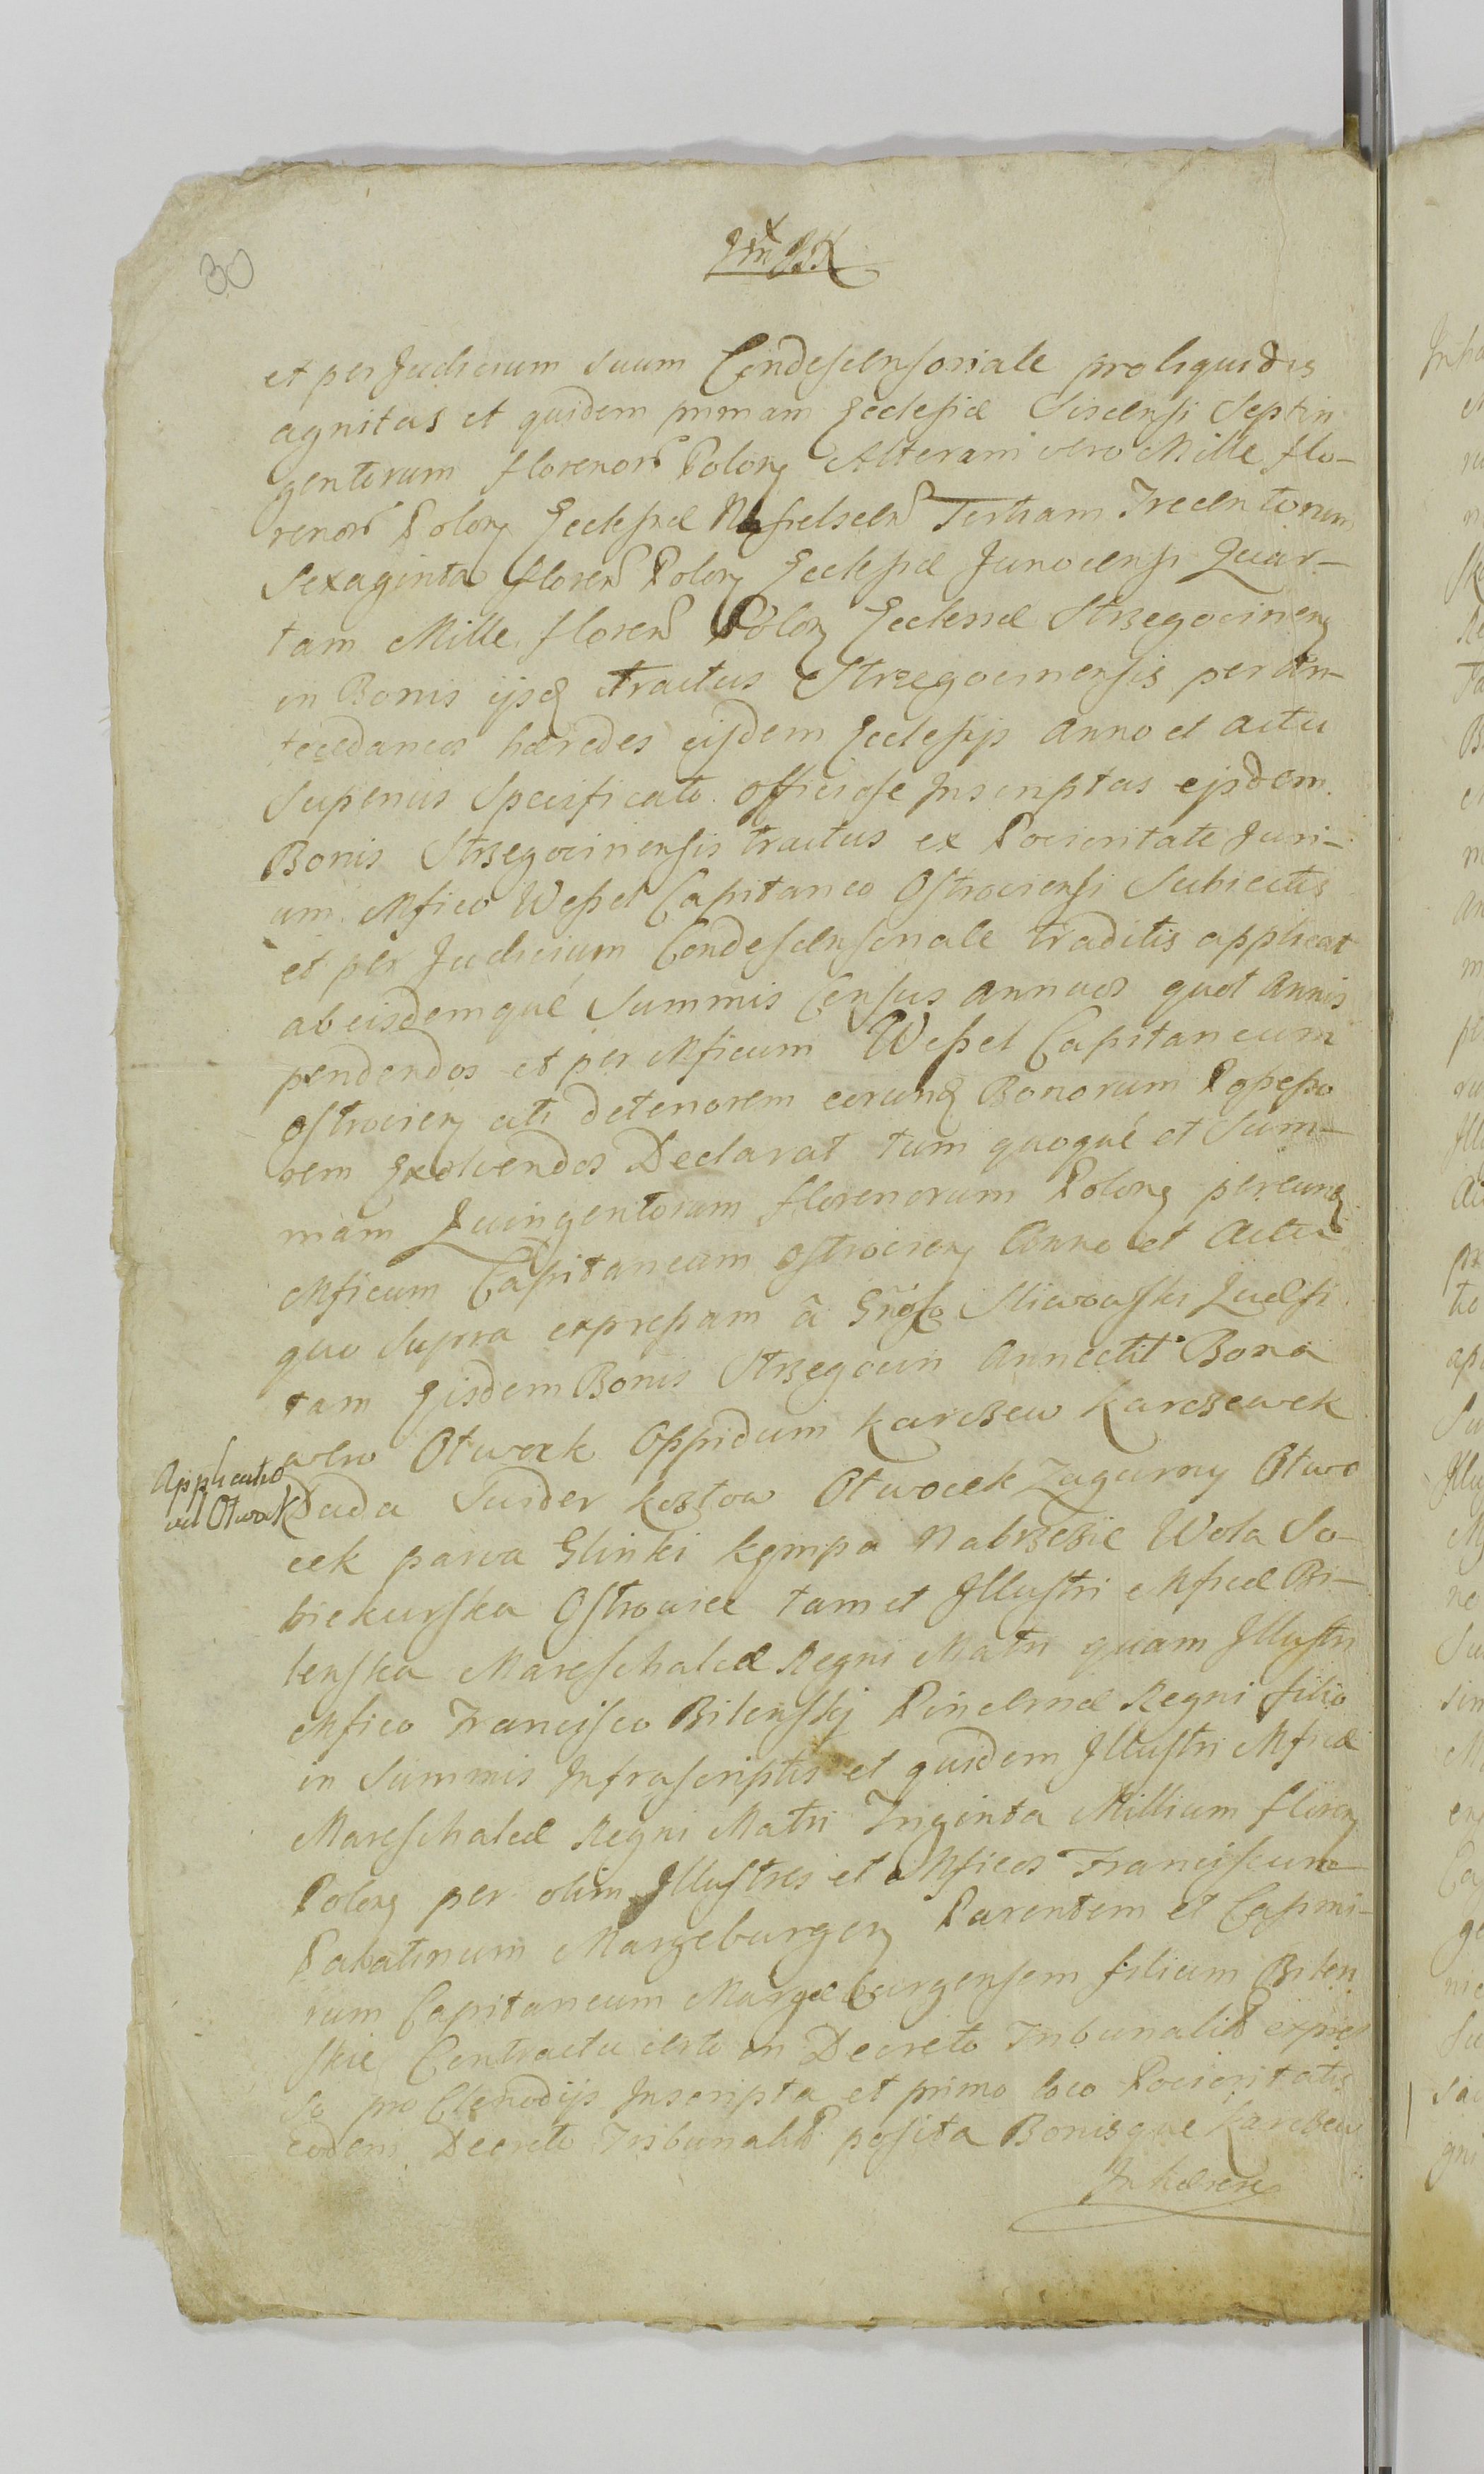 30
et per Judicium suum Condescensoriale pro liquidis
agnitas et quidem primam Ecclesiæ Siscensi Septin
gentorum florenor Polon Alteram vero Mille flo-
renor Polon Ecclesiæ Tertiam Trecentorum
Sexaginta floren Polon Ecclesiæ Quar-
tam Mille floren Polon Ecclesiæ Strzegocinen
in Bonis ijsd tractus Strzegocinensis per An-
tecedaneos hæredes eisdem Ecclesijs Anno et actu
Superius Specificato officiose Inscriptas ejsdem
Bonis Strzegocinensis tractus ex Pocioritate Juri-
um Mfico Weßel Capitaneo Ostrociensi Subiectis
et per Judicium Condescensoriale traditis applicat
ab eisdemqué Summis Census annuos quot Annis
pendendos et per Mficum Weßel Capitaneum
Ostrocien uti detentorem eorund Bonorum Poßeßo
rem Exolvendos Declarat tum quoqué et Sum-
mam Quingentorum florenorum Polon per eund
Mficum Capitaneum Ostrocien Anno et Actu
quo Supra expreßam à Gnoso Sliwowski Quæsi
tam Eisdem Bonis Strzegocin Annectit Bona
vero Otwock Oppidum Karczew Karczewek
Applicatio
ad Otwock
Duda Swider Kozłow Otwocek Zagurny Otwo
cek parva Glinki Kępmpa Nabrzezie Wola So-
biekurska Ostrowiec tam et Illustri Mficæ Bi-
lenska Mareschalcæ Regni Matri quam Illustri
Mfico Francisco Bilenskj Pincernæ Regni filio
in Summis Infrascriptis et quidem Illustri Mficæ
Mareschalcæ Regni Matri Triginta Millium floren
Polon per olim Illustres et Mficos Franciscum
Palatinum Margeburgen Parentem et Casimi-
rum Capitaneum Margæburgensem filium Bilen
skie Contractu certo in Decreto Tribunalit expres
so pro Clenodijs Inscripta et primo loco Pocioritatis
eodem Decreto Tribunalit posita Bonisque Karczew
Inhærere